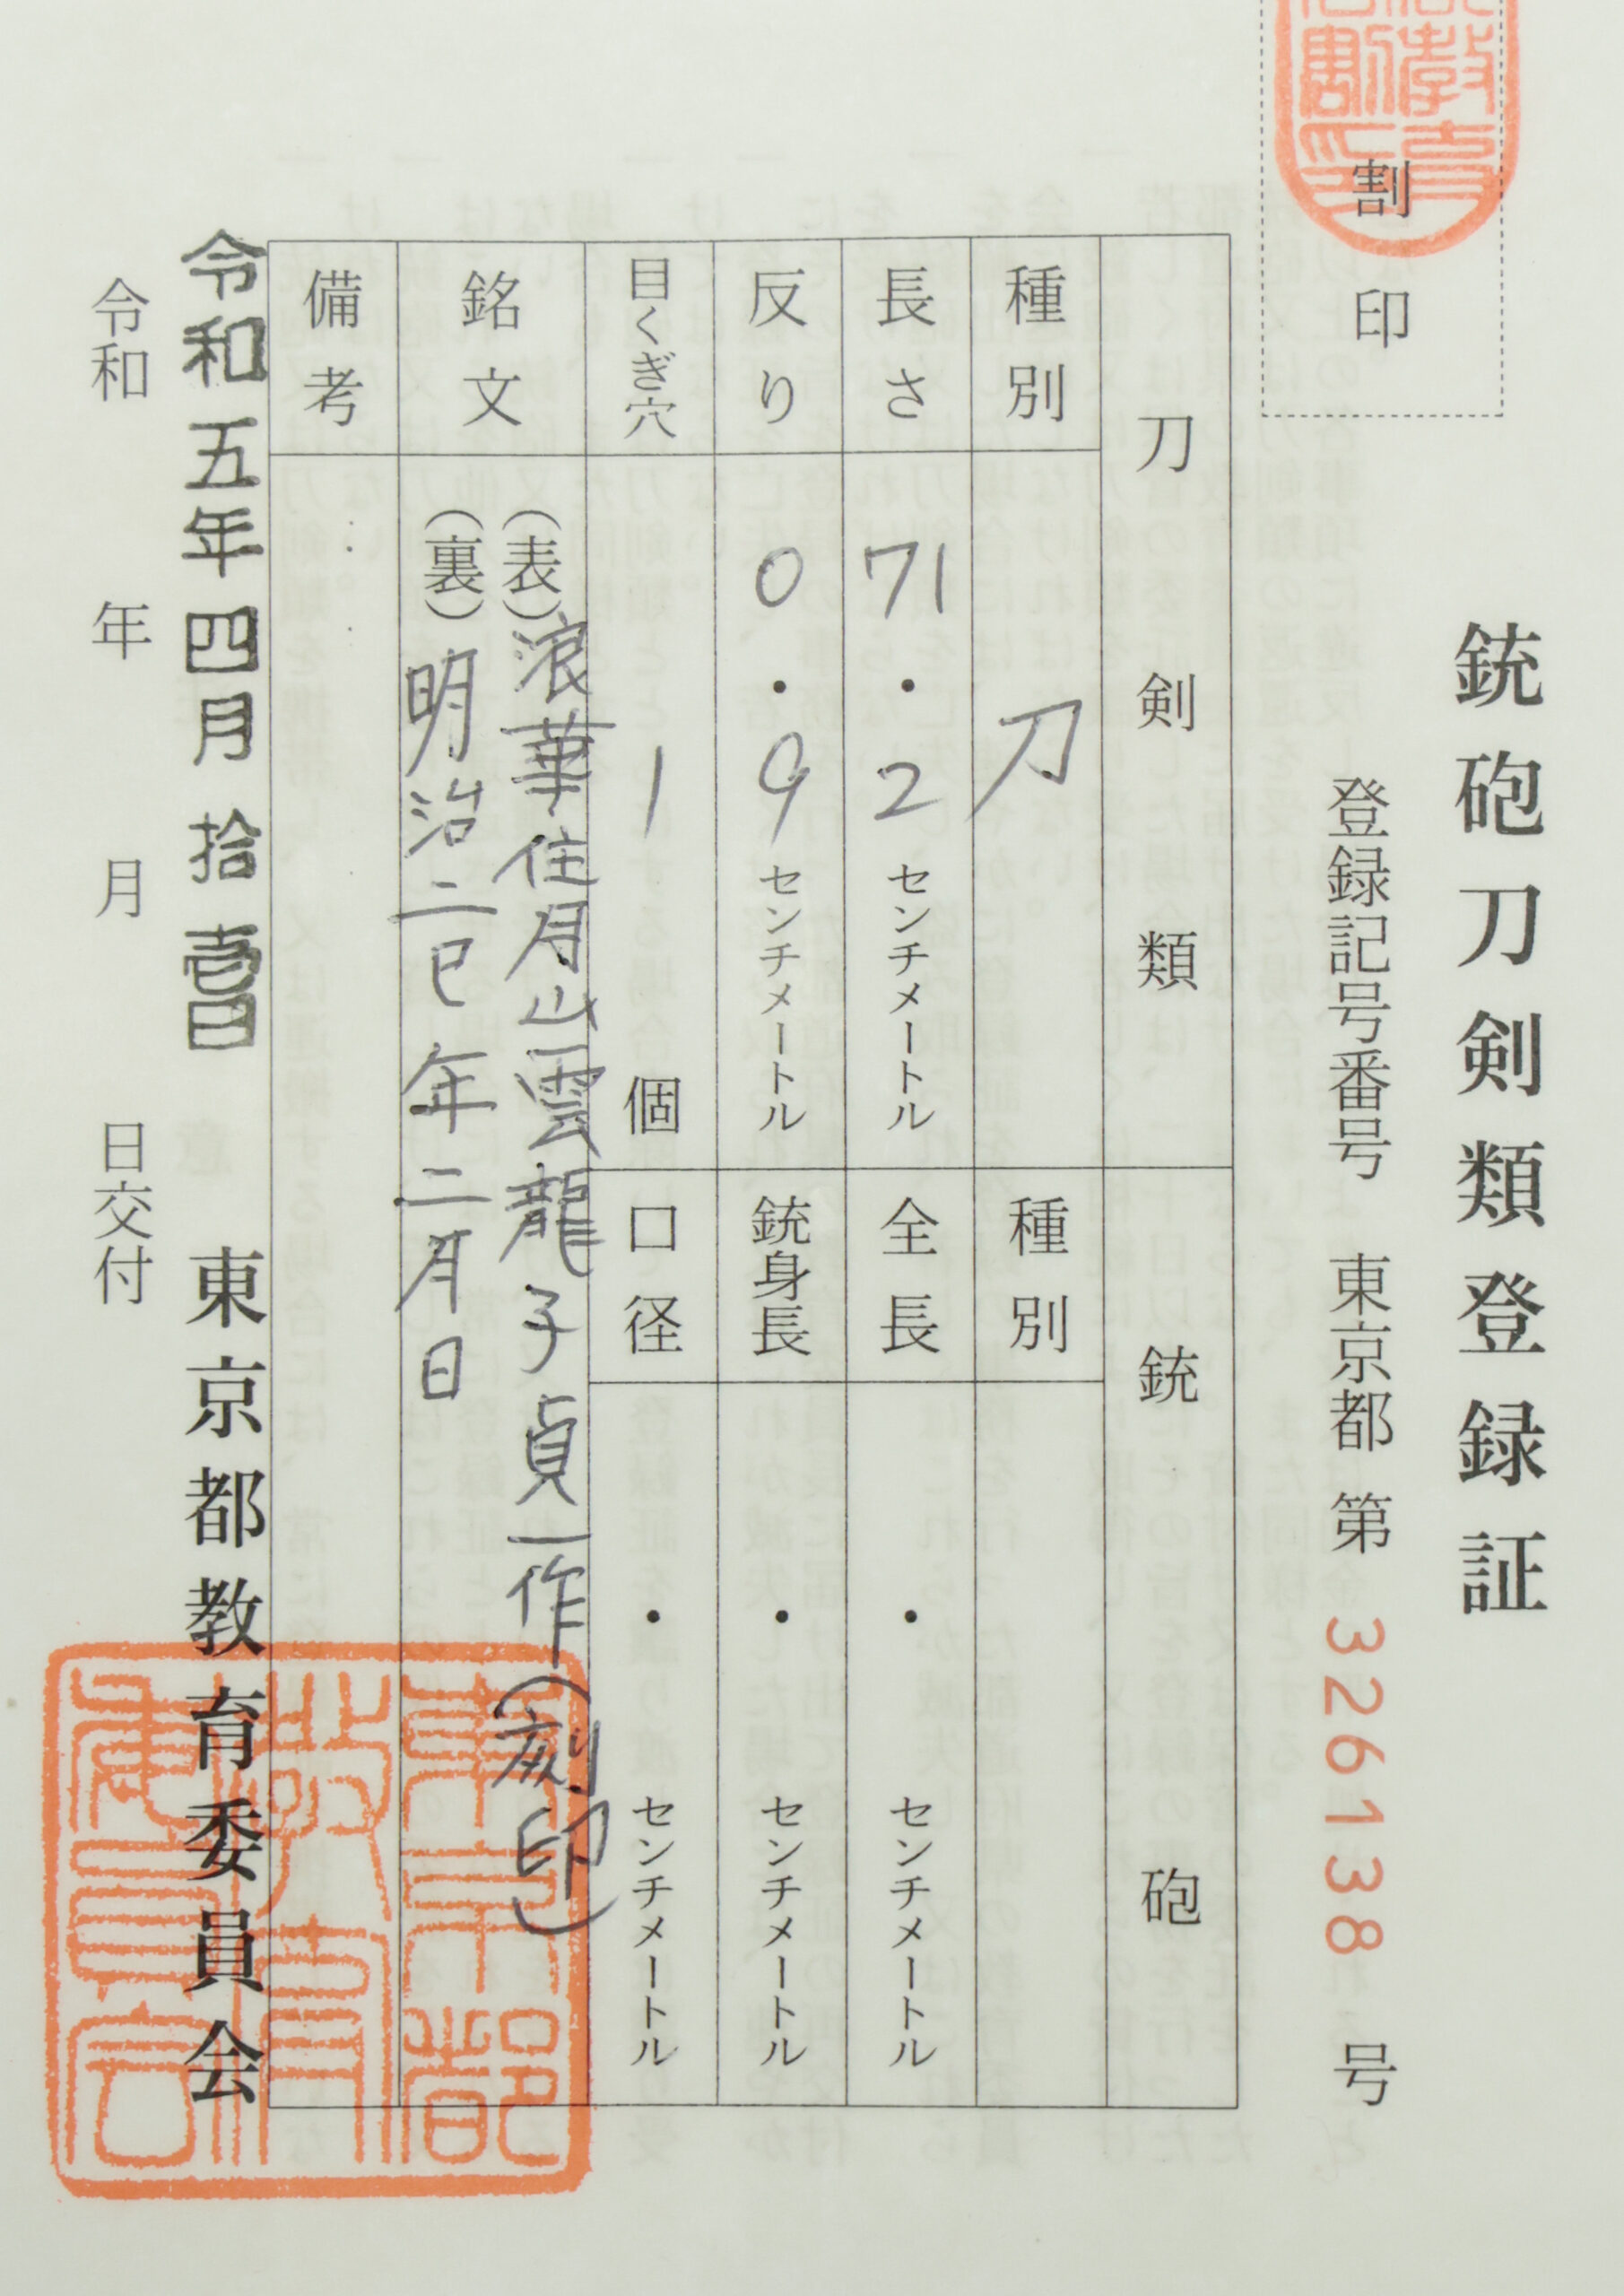 銃砲刀剣類登録証
登録記号番号 東京都 第 326138 号
割印
刀剣類
銃砲
種別 刀
長さ 71.2 センチメートル
反り 0.9 センチメートル
目くぎ穴 1 個
銘文
(表)浪華住月山雲龍子貞一作(刻印)
(裏)明治二巳年二月日
備考
種別
全長 ・ センチメートル
銃身長 ・ センチメートル
口径 ・ センチメートル
令和五年四月拾壱日
東京都教育委員会
令和 年 月 日交付